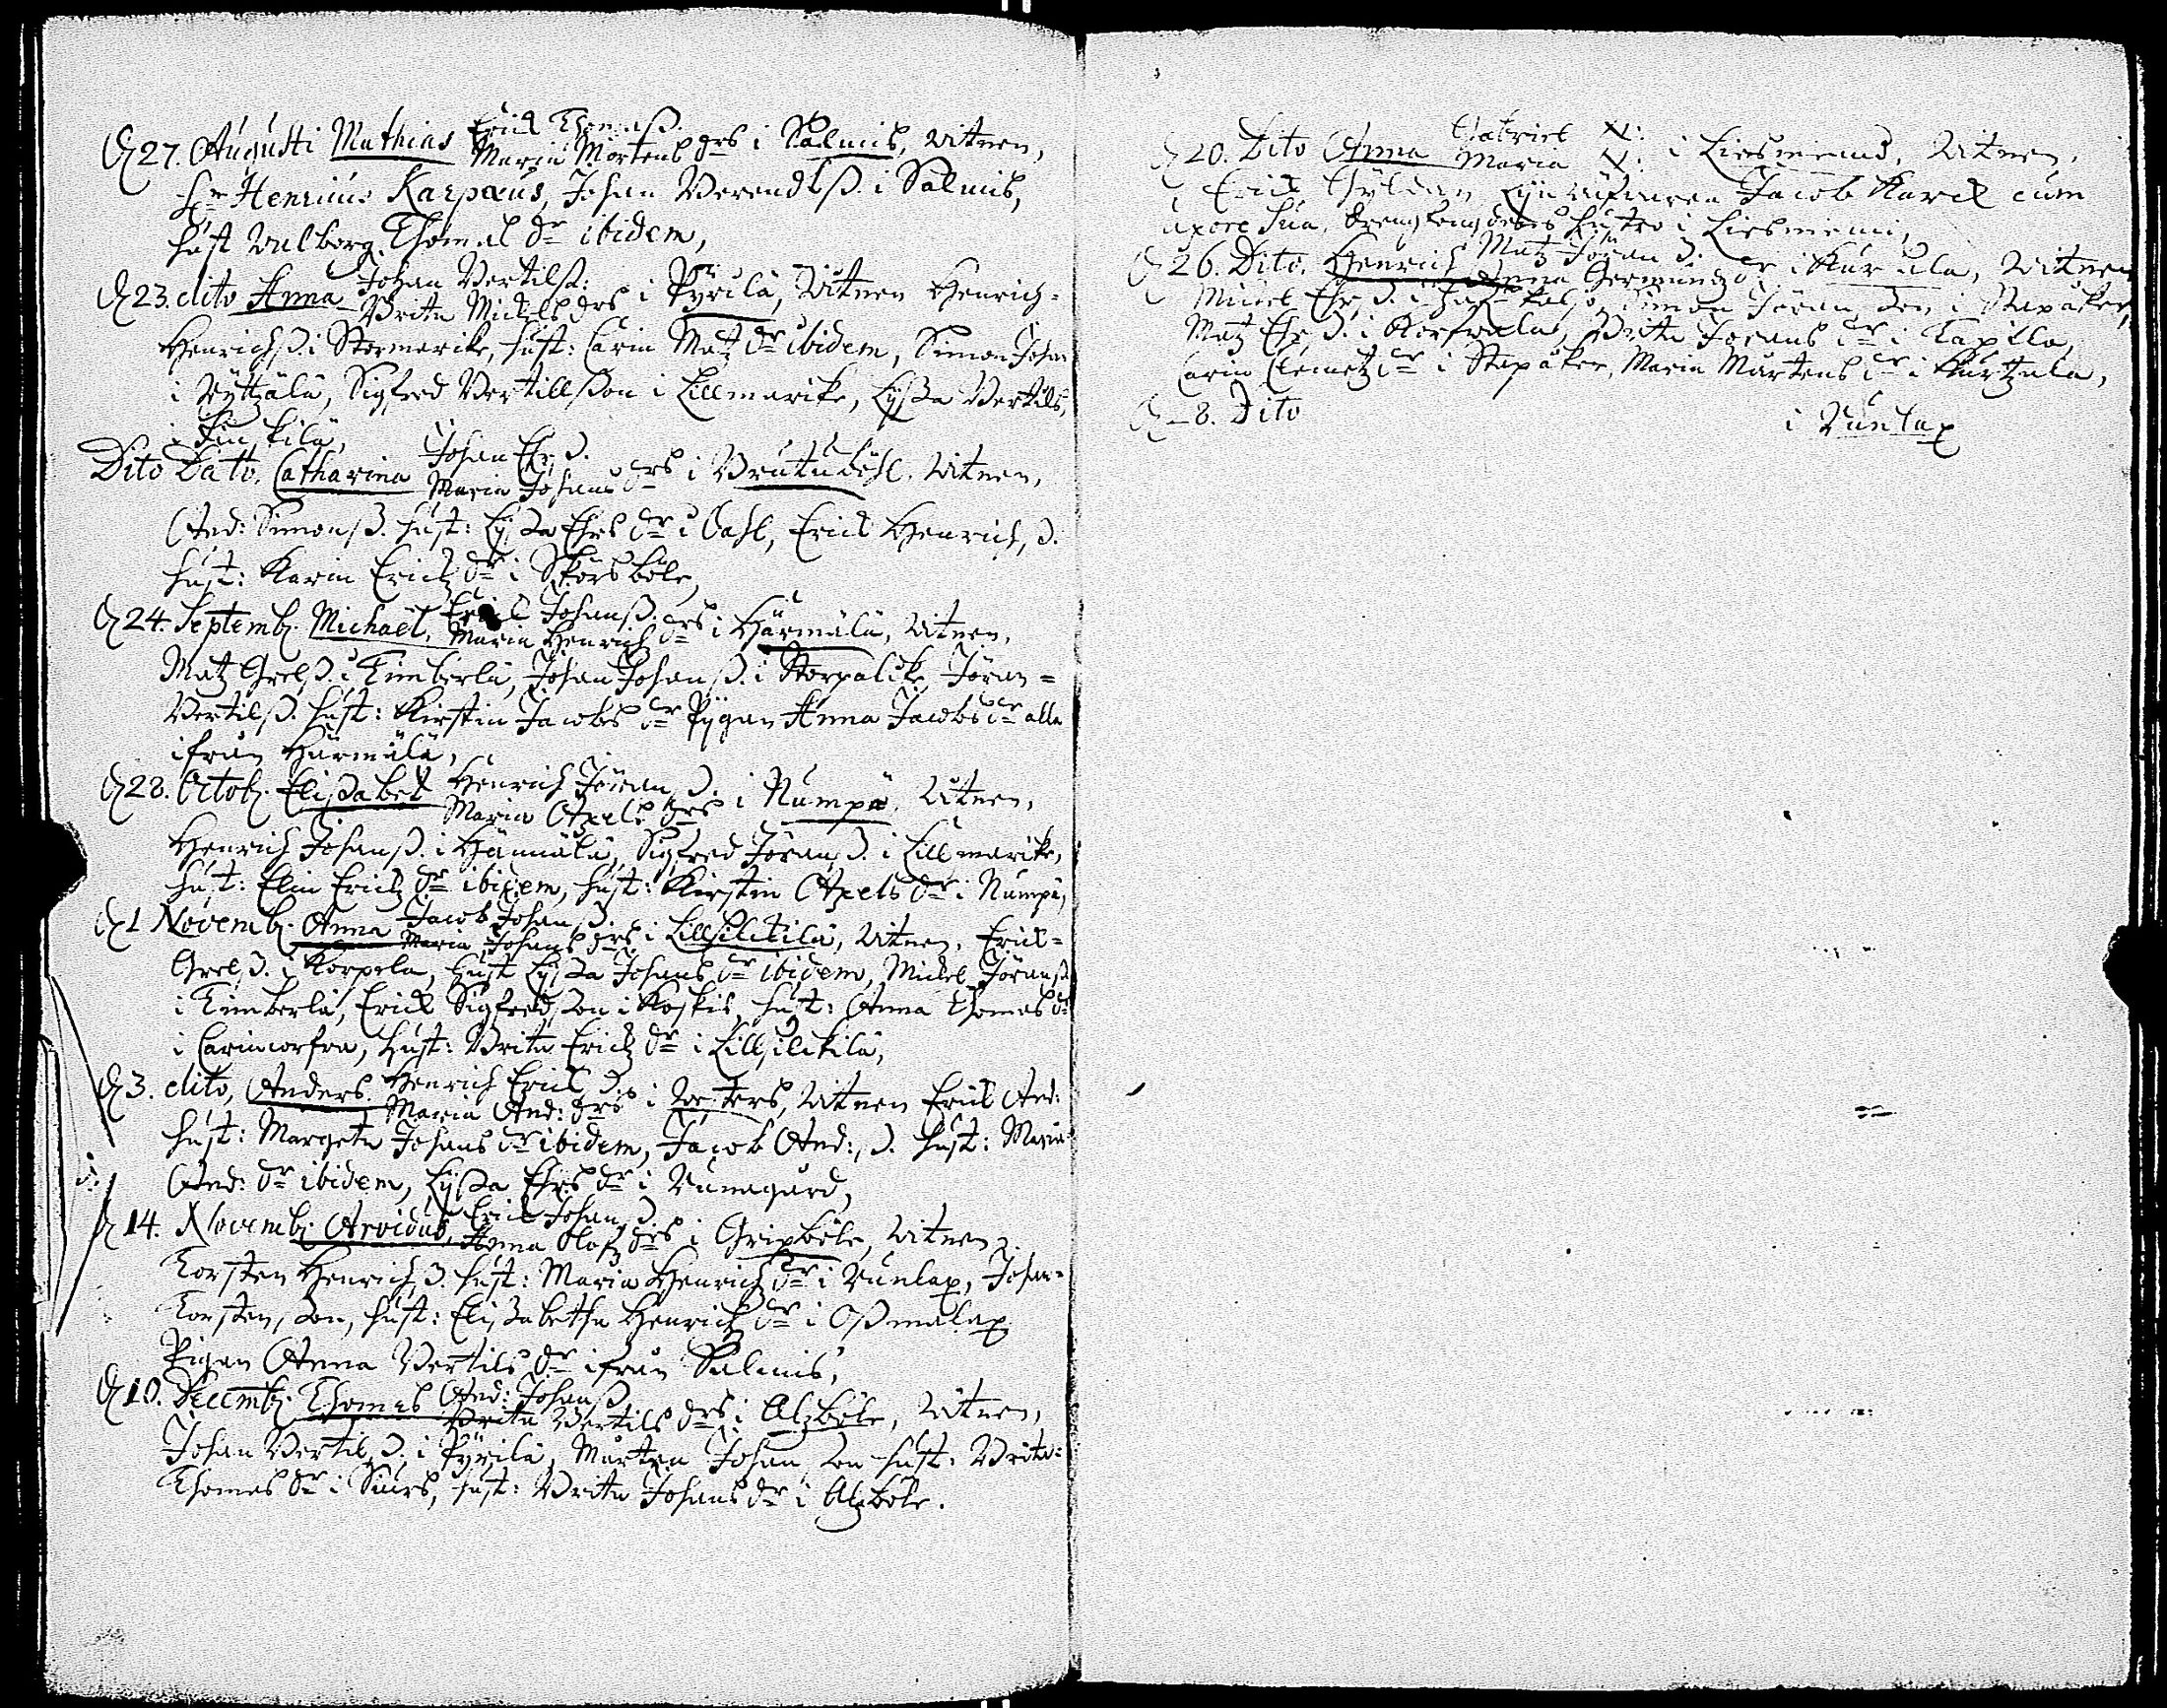 D 27. Augusti Mathias Erick Thomaß.
Maria Mortens drs i Salmis, witnen,
Hr Henricus Karpæus, Johan Berendtß. i Salmis,
hust Walborg Thomas dr ibidem,
D 23. dito Anna Johan Bertilß:
Brita Mickels drs i Pyrilä, Witnen Henrich=
Henrichß. i Stormarike, hust: Carin Matz dr ibidem, Simon Johan
i Nyttjälä, Sigfred Bertillßon i Lillmarike, Lyßa Bertils,
i
Dito Dato. Catharina Johan Ehrß.
Maria Johans drs i Brutuböhl. witnen,
And: Simonß. hust: Lyßa Ehrs dr i Dahl, Erick Henrichß.
hust: Karin Erichz dr i Skorsböle,
D 24. Septemb. Michaël. Erick Johanß.
Maria Henrich drs i Härmälä, witnen,
Matz Grelß. i Kimberlä, Johan Johanß. i Storpalicke Jöran=
Bertilß. hust: Kirstin Jacobs dr Pygan Anna Jacobs dr alla
ifrån Härmälä,
D 28. Octob. Elißabet Henrich Jöranß.
Maria Axels drs i Numpä. witnen,
Henrich Johanß. i Härmälä, Sigfred Jöranß. i Lillmarike,
hust: Elin Erichz dr ibidem, hust: Kirstin Axels dr i Numpä,
D 1 Novemb. Anna Jacob Johanß.
Maria Johans drs i Lillsilckilä, witnen. Erick=
Grelß. i Korpela, hust Lyßa Johans dr ibidem, Mickel Jöranß
i Kimberlä, Erick Sigfredßon i Koskis, hust: Anna Thomas dr
i Carincorfva, hust: Brita Erichz dr i Lillsilckilä,
D 3. dito, Anders. Henrich Erickß.
Maria And: drs i, witnen Erick And:
hust: Margeta Johans dr ibidem, Jacob And:ß. hust: Maria
And: dr ibidem, Lyßa Ehrs dr i Nunagård,
D 14. Novemb. Arvidus, Erick Johanß.
Anna Olofz drs i Gripböle, witnen
Torsten Henrichß. hust: Maria Henrich dr i Nunlax, Johan=
Torstenßon, hust: Elißabetha Henrich dr i Oßmalax
Pigan Anna Bertils dr ifrån Salmis,
D 10. Decemb. Thomas And: Johanß
Brita Bertils drs i Alzböle, witnen,
Johan Bertilß. i Pyrilä, Mårten Johanßon hust: Brita=
Thomas dr i, hust: Brita Johans dr i Alzböle.
D 20. Dito Anna Gabriel N:
Maria N: i Liesniemi, Witnen,
Erick Gyldeen, Jacob Karck cum
uxore sua, hustro i Liesniemi,
D 26. Dito. Henrich Matz Jöranß.
Anna Germundz dr i Kurula, Witnen
Mickel Ehrß. i, Simon Jöranßon i Stapåker,
Matz Ehrß. i Korfvola, Britta Jörans dr i Tapilla,
Carin Clemetz dr i Stapåker, Maria Mårtens dr i Kurtzula,
D 8. Dito i Nunlax